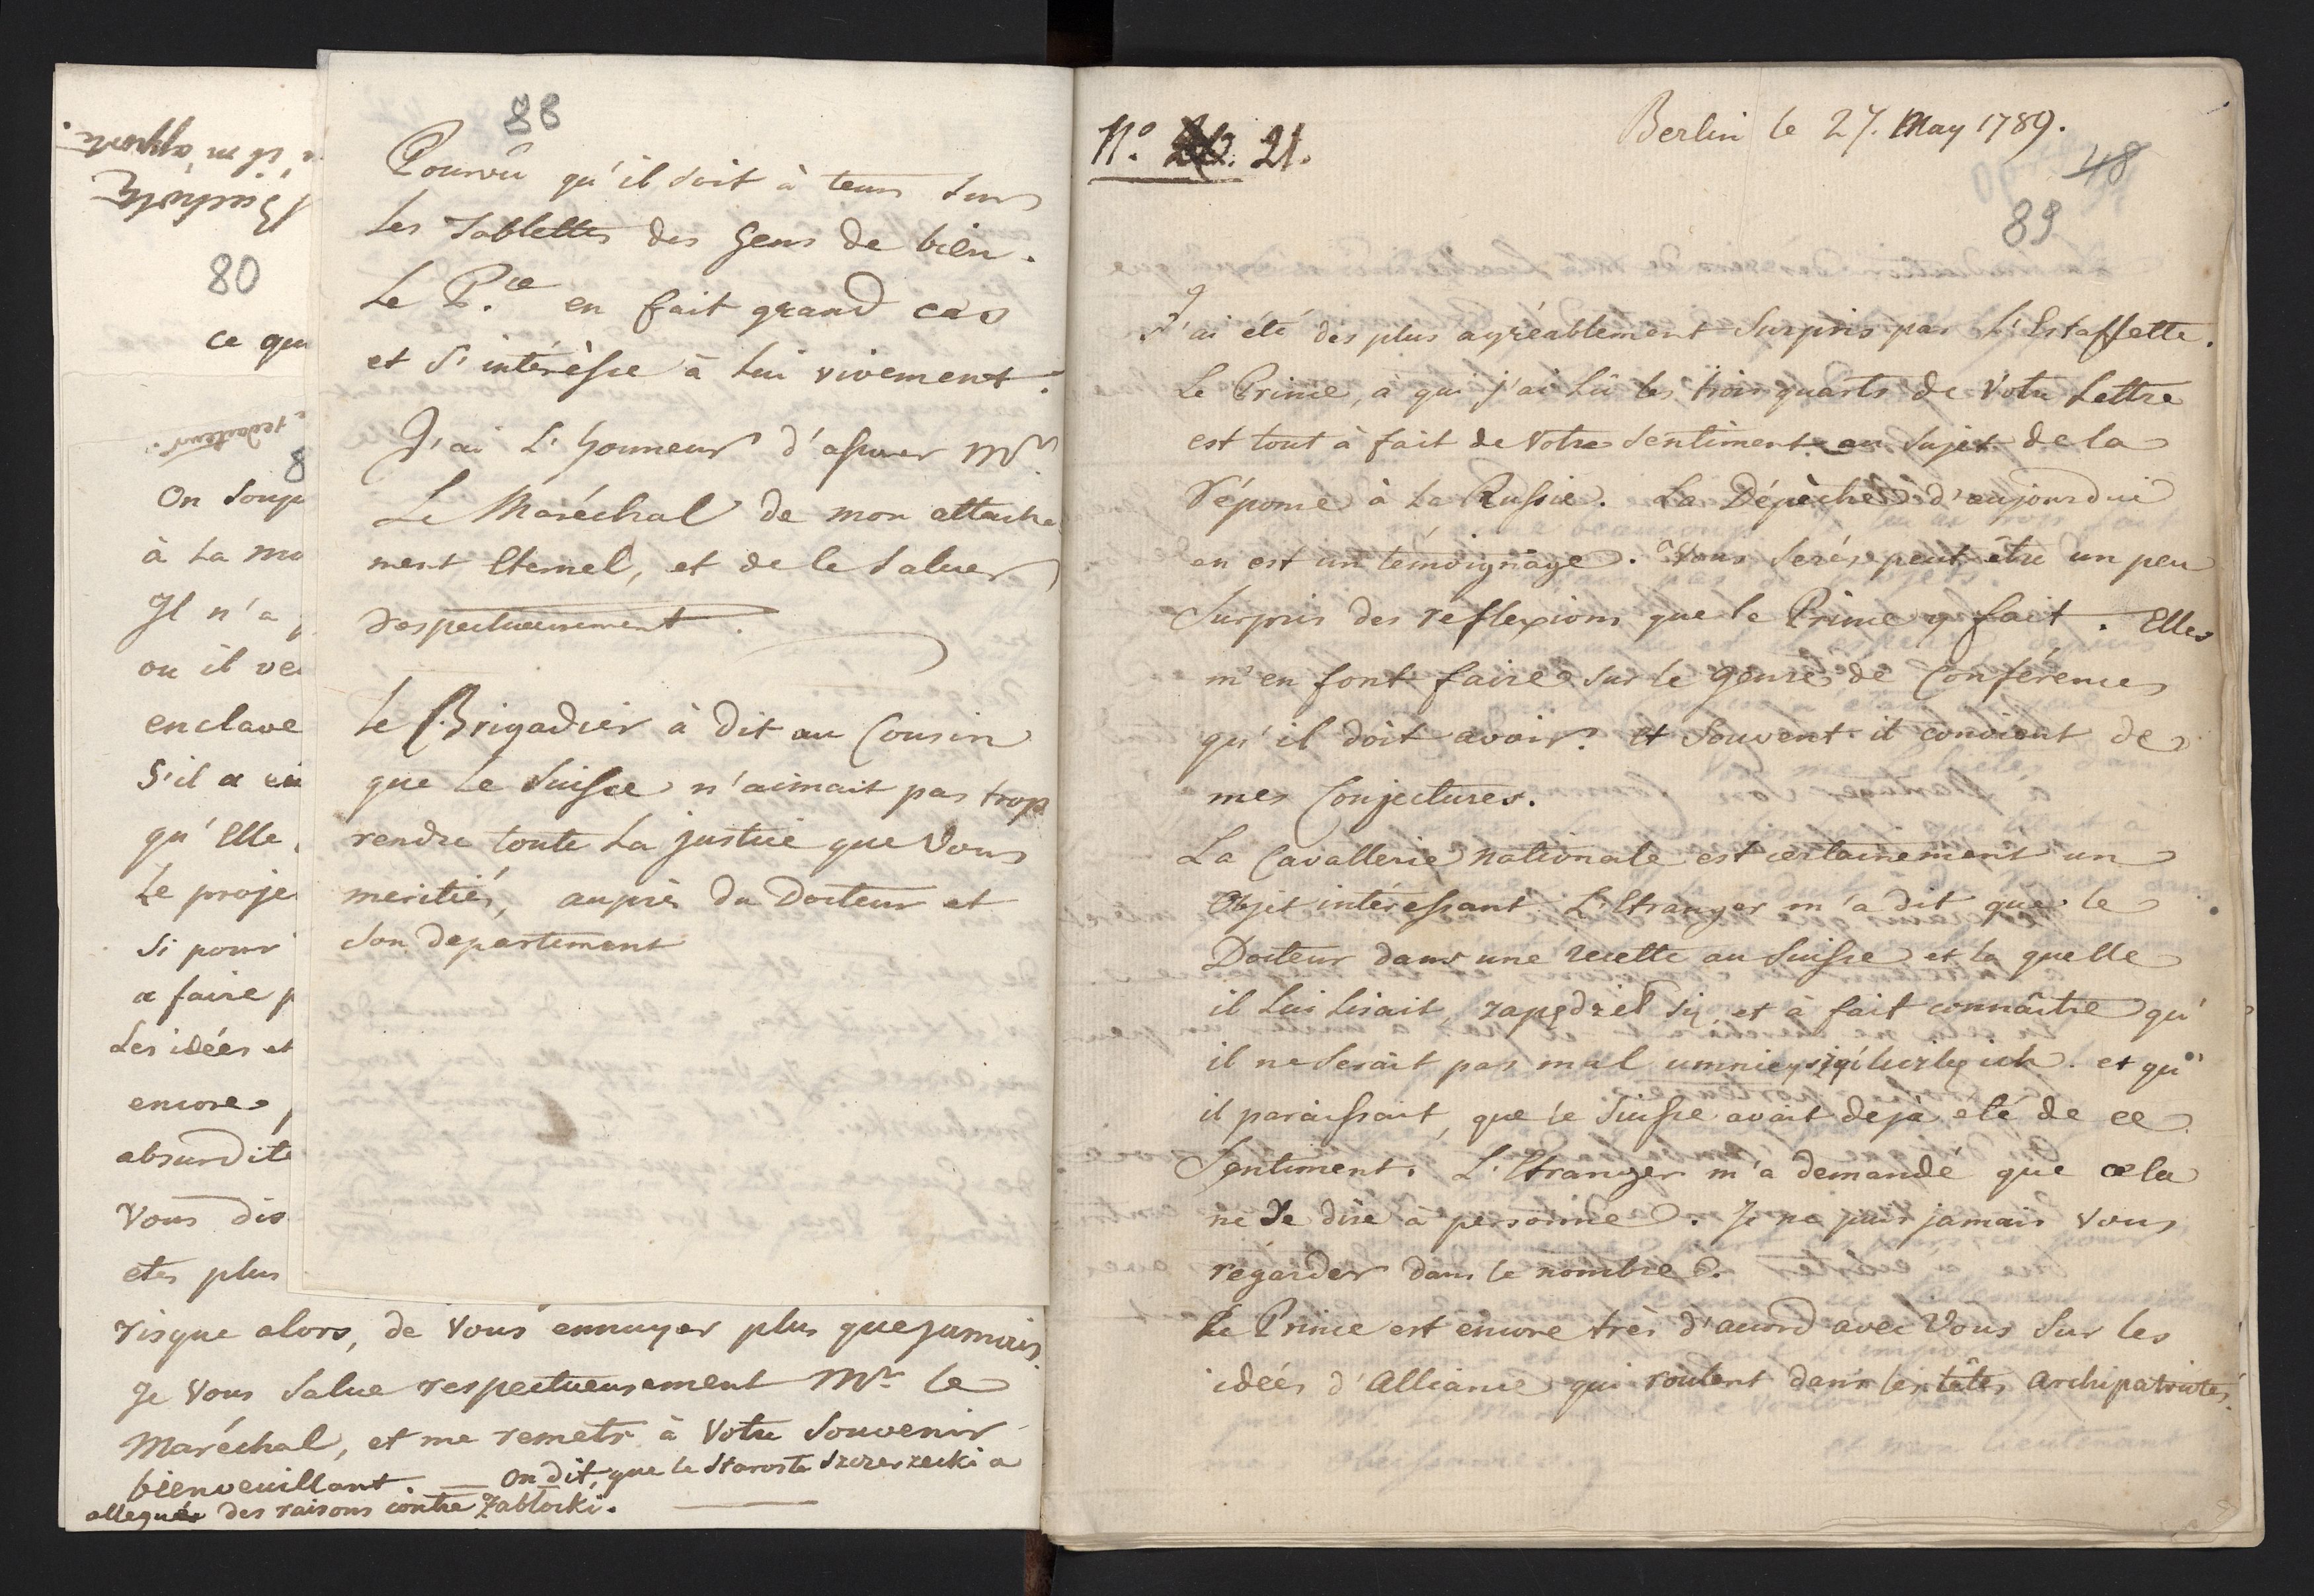 s'il m'apporte.
80
ce que
redacteur.
8
On soup
à la mo
Il n'a
ou il ve
enclave
S'il a
qu'Elle
Le proje
Si pour
a faire p
Les idées et
encore
absurdité
Vous dis
etes plus
risque alors, de vous ennuyer plus que jamais
Je vous salue respectueusement Mr. le
Maréchal, et me remets à Votre Souvenir
bienveuillant. — On dit, que le Staroste Szczerzecki a
allegué des raisons contre Zabłocki.
88
Pourvû qu'il soit à tems sur
les Tablettes des Gens de bien.
Le P.ce en fait grand cas
et s'intéresse à lui vivement.
J'ai l'honneur d'assurer Mr
Le Maréchal de mon attache
ment Eternel, et de le saluer
respectueusement.
Le Brigadier à dit au Cousin
que le Suisse n'aimait pas trop
rendre toute la justice que Vous
meritiés, auprès du Docteur et
son departement
No. 21.
Berlin le 27. May 1789.
48
89
J'ai été des plus agréablement surpris par l'Estaffette.
Le Prince, à qui j'ai lû les trois quarts de Votre Lettre
est tout à fait de Votre Sentiment au sujet de la
réponse à la Russie. La Dépèche d'aujourdui
en est un témoignage. Vous serés peut être un peu
surpris des reflexions que le Prince y fait. Elles
m'en font faire sur le genre de Conférences
qu'il doit avoir. et souvent il convient de
mes Conjectures.
La Cavallerie nationale est certainement un
Objet intéressant. L'Etranger m'a dit que le
Docteur dans une recette au Suisse et la quelle
il lui lisait, zapędził się, et à fait connaître qu'
il ne serait pas mal et qu'
il paraissait, que le Suisse avait deja eté de ce
Sentiment. L'Etranger m'a demandé que cela
ne se dise à personne. Je ne puis jamais Vous
régarder dans le nombre.
Le Prince est encore très d'acord avec Vous sur les
idées d'Alliance qui roulent dans les têtes Archipatriotes.